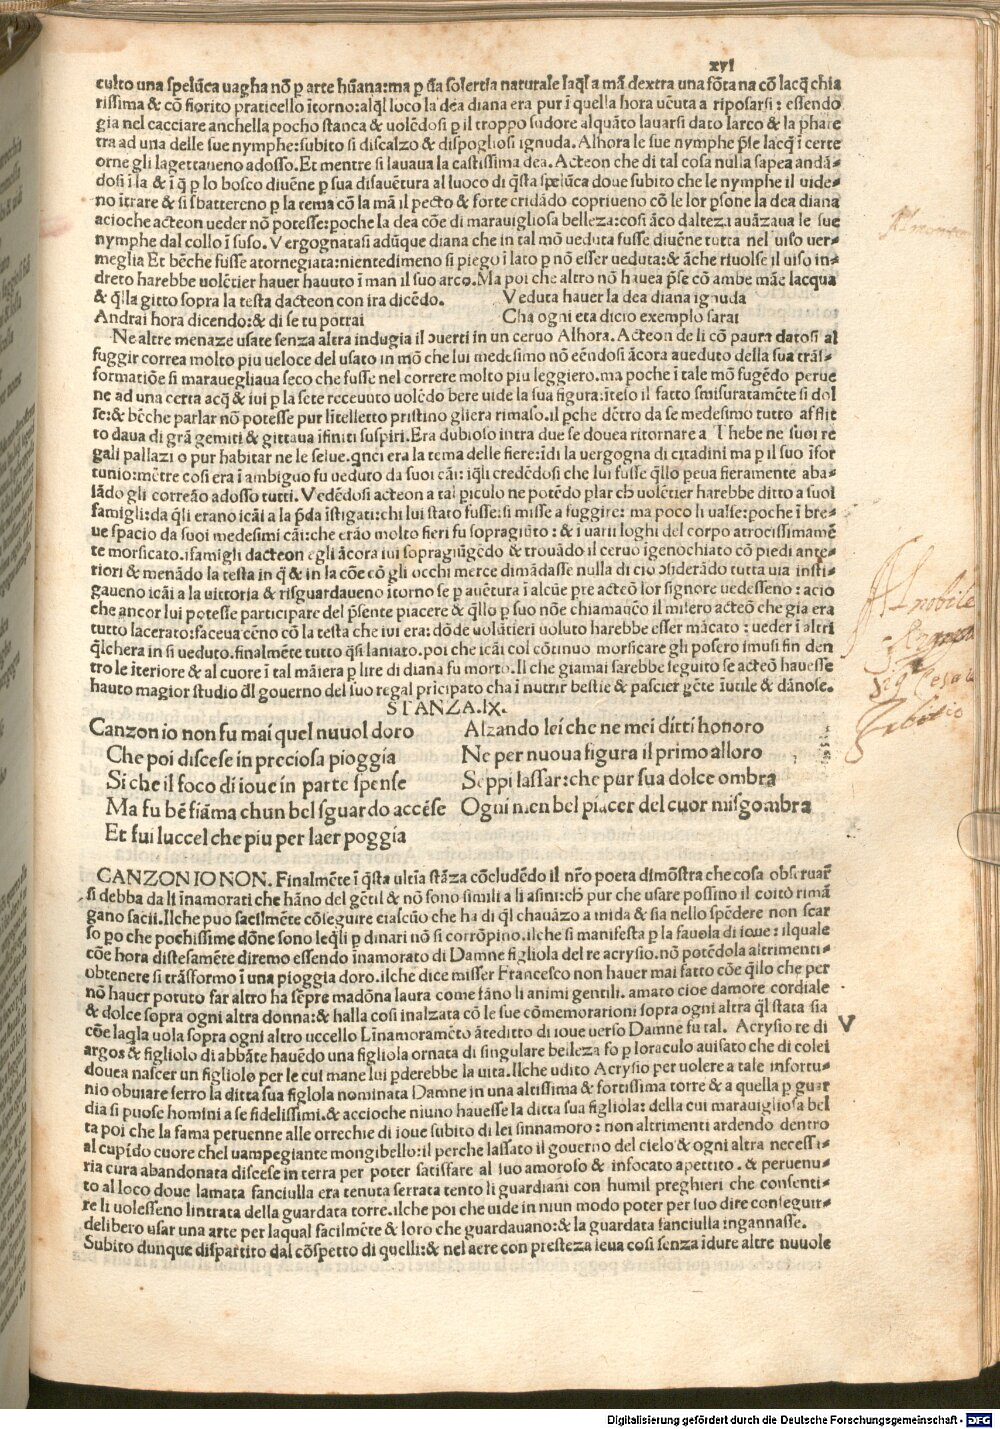 xvi
culto una spelūca uagha nō p arte hūana:ma p d̄a solertia naturale laq̄l a mā dextra una fōtana cō lacq̄ chia
rissima & cō fiorito praticello ītorno:alq̄l loco la dea diana era pur ī quella hora uēuta a riposarsi: essendo
gia nel cacciare anchella pocho stanca & uolēdosi p il troppo sudore alquāto lauarsi dato larco & la phare
tra ad una delle sue nymphe:subito si discalzo & dispogliosi ignuda. Alhora le sue nymphe p̄se lacq̄ ī certe
orne gli la gettaueno adosso. Et mentre si lauaua la castissima dea. Acteon che di tal cosa nulla sapea andā-
dosi ī la & ī q̄ p lo bosco diuēne p sua disauētura al luoco di q̄sta spelūca doue subito che le nymphe il uide-
no ītrare & si sbattereno p la tema cō la mā il pecto & forte cridādo copriueno cō le lor p̄sone la dea diana
acioche acteon ueder nō potesse:poche la dea cōe di marauigliosa belleza:cosi āco dalteza auāzaua le sue
nymphe dal collo ī suso. Vergognatasi adūque diana che in tal mō ueduta fusse diuēne tutta nel uiso uer-
meglia Et bēche fusse atornegiata:nientedimeno si piego ī lato p nō esser ueduta:& āche riuolse il uiso in-
dreto harebbe uolētier hauer hauuto ī man il suo arco. Ma poi che altro nō hauea p̄se cō ambe māe lacqua
& q̄lla gitto sopra la testa dacteon con ira dicēdo. Veduta hauer la dea diana ignuda
Andrai hora dicendo:& di se tu potrai Cha ogni eta dicio exemplo sarai
Ne altre menaze usate senza altra indugia il ɔuerti in un ceruo Alhora. Acteon de li cō paura datosi al
fuggir correa molto piu ueloce del usato in mō che lui medesimo nō eēndosi ācora aueduto della sua trās-
formatiōe si marauegliaua seco che fusse nel correre molto piu leggiero. ma poche ī tale mō fugēdo perue
ne ad una certa acq̄ & iui p la sete receuuto uolēdo bere uide la sua figura:iteso il fatto smisuratamēte si dol
se:& bēche parlar nō potesse pur lītelletto pristino gliera rimaso. il pche dētro da se medesimo tutto afflit
to daua di grā gemiti & gittaua ifiniti suspiri. Era dubioso intra due se douea ritornare a Thebe ne suoi re
gali pallazi o pur habitar ne le selue. qnci era la tema delle fiere:īdi la uergogna di citadini ma p il suo īfor
tunio:mētre cosi era ī ambiguo fu ueduto da suoi cāi: iq̄li credēdosi che lui fusse q̄llo peua fieramente aba-
lādo gli correāo adosso tutti. Vedēdosi acteon a tal piculo ne potēdo plar ch uolētier harebbe ditto a suoi
famigli:da q̄li erano icāi a la p̄da īstigati:chi lui stato fusse:si misse a fuggire: ma poco li ualse:poche ī bre-
ue spacio da suoi medesimi cāi:che erāo molto fieri fu sopragiūto: & ī uarii loghi del corpo atrocissimamē
te morsicato. i famigli dacteon egli ācora iui sopragiūgēdo & trouādo il ceruo īgenochiato cō piedi ante-
riori & menādo la testa in q̄ & in la cōe cō gli occhi merce dimādasse nulla di cio ɔsiderādo tutta uia insti-
gaueno icāi a la uictoria & risguardaueno itorno se p auētura ī alcūe pte acteō lor signore uedesseno: acio
che ancor lui potesse participare del p̄sente piacere & q̄llo p suo nōe chiamauēo il misero acteō che gia era
tutto lacerato:faceua cēno cō la testa che iui era: dōde uolūtieri uoluto harebbe esser mācato: ueder ī altri
q̄lchera in si ueduto. finalmēte tutto q̄si laniato. poi che icāi col cōtinuo morsicare gli posero imusi fin den
tro le īteriore & al cuore ī tal māiera p lire di diana fu morto. Il che giamai sarebbe seguito se acteō hauesse
hauto magior studio dl gouerno del suo regal pricipato cha ī nutrir bestie & pascier gēte īutile & dānose.
STANZA. IX.
Canzon io non fu mai quel nuuol doro
Che poi discese in preciosa pioggia
Si che il foco di ioue in parte spense
Ma fu bē fiāma chun bel sguardo accēse
Et fui luccel che piu per laer poggia
Alzando lei che ne mei ditti honoro
Ne per nuoua figura il primo alloro
Seppi lassar:che pur sua dolce ombra
Ogni men bel piacer del cuor misgombra
CANZON IO NON. Finalmēte ī q̄sta ultīa stāza cōcludēdo il nr̄o poeta dimōstra che cosa obseruar
si debba da li īnamorati che hāno del gētil & nō sono simili a li asini:ch pur che usare possino il coito rimā
gano sacii. Ilche puo facilmēte cōseguire ciascūo che ha di q̄l chauāzo a mida & sia nello spēdere non scar
so po che pochissime dōne sono leq̄li p dinari nō si corrōpino. ilche si manifesta p la fauola di ioue: ilquale
cōe hora distesamēte diremo essendo īnamorato di Damne figliola del re acrysio. nō potēdola altrimenti-
obtenere si trāsformo ī una pioggia doro. ilche dice misser Francesco non hauer mai fatto cōe q̄llo che per
nō hauer potuto far altro ha sēpre madōna laura come fāno li animi gentili. amato cioe damore cordiale
& dolce sopra ogni altra donna:& halla cosi inalzata cō le sue cōmemorationi sopra ogni altra q̄l stata sia
cōe laq̄la uola sopra ogni altro uccello Līnamoramēto āteditto di ioue uerso Damne fu tal. Acrysio re di
V
argos & figliolo di abbāte hauēdo una figliola ornata di singulare belleza fo p loraculo auisato che di colei
douea nascer un figliolo per le cui mane lui pderebbe la uita. Ilche udito Acrysio per uolere a tale infortu-
nio obuiare serro la ditta sua figlola nominata Damne in una altissima & fortissima torre & a quella p guar
dia si puose homini a se fidelissimi. & accioche niuno hauesse la ditta sua figliola: della cui marauigliosa bel
ta poi che la fama peruenne alle orrechie di ioue subito di lei sinnamoro: non altrimenti ardendo dentro
al cupido cuore chel uampegiante mongibello:il perche lassato il gouerno del cielo & ogni altra necessa-
ria cura abandonata discese in terra per poter satisfare al suo amoroso & infocato apettito. & peruenu-
to al loco doue lamata fanciulla era tenuta serrata tento li guardiani con humil preghieri che consenti-
re li uolesseno lintrata della guardata torre. ilche poi che uide in niun modo poter per suo dire conseguir-
delibero usar una arte per laqual facilmēte & loro che guardauano:& la guardata fanciulla ingannasse.
Subito dunque dispartito dal cōspetto di quelli:& nel aere con presteza leua cosi senza īdure altre nuuole
Al nobile
Digitalisierung gefördert durch die Deutsche Forschungsgemeinschaft - DFG